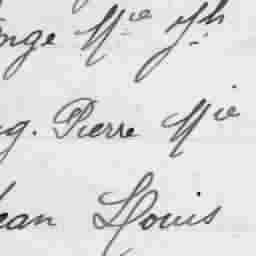 onge Mie Jh
ug. Pierre Mie
ean Louis